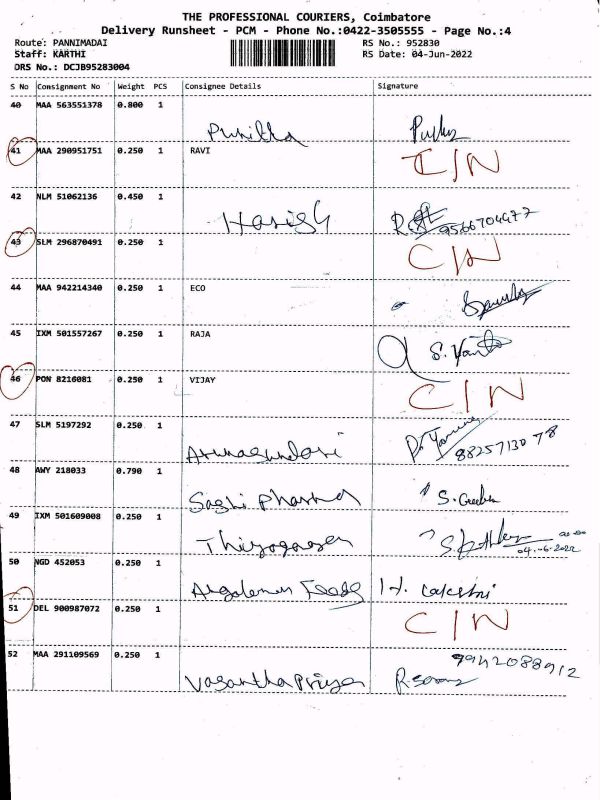 THE PROFESSIONAL COURIERS, Coimbatore
Delivery Runsheet - PCM - Phone No.:0422-3505555 - Page No.:4
Route: PANNIMADAI RS No.: 952830
Staff: KARTHI RS Date: 04-Jun-2022
DRS No.: DCJB95283004
S No Consignment No Weight PCS Consignee Details Signature
40 MAA 563551378 0.800 1
Punitha
41 MAA 290951751 0.250 1 RAVI
C/N
42 NLM 51062136 0.450 1
Harish 9566704977
43 SLM 296870491 0.250 1
C/N
44 MAA 942214340 0.250 1 ECO
45 IXM 501557267 0.250 1 RAJA
46 PON 8216081 0.250 1 VIJAY
C/N
47 SLM 5197292 0.250 1
Arunasundari 8825713078
48 AWY 218033 0.790 1
49 IXM 501609008 0.250 1
04.06.2022
50 NGD 452053 0.250 1
51 DEL 900987072 0.250 1
C/N
52 MAA 291109569 0.250 1 9942088912
Vasantha Priya